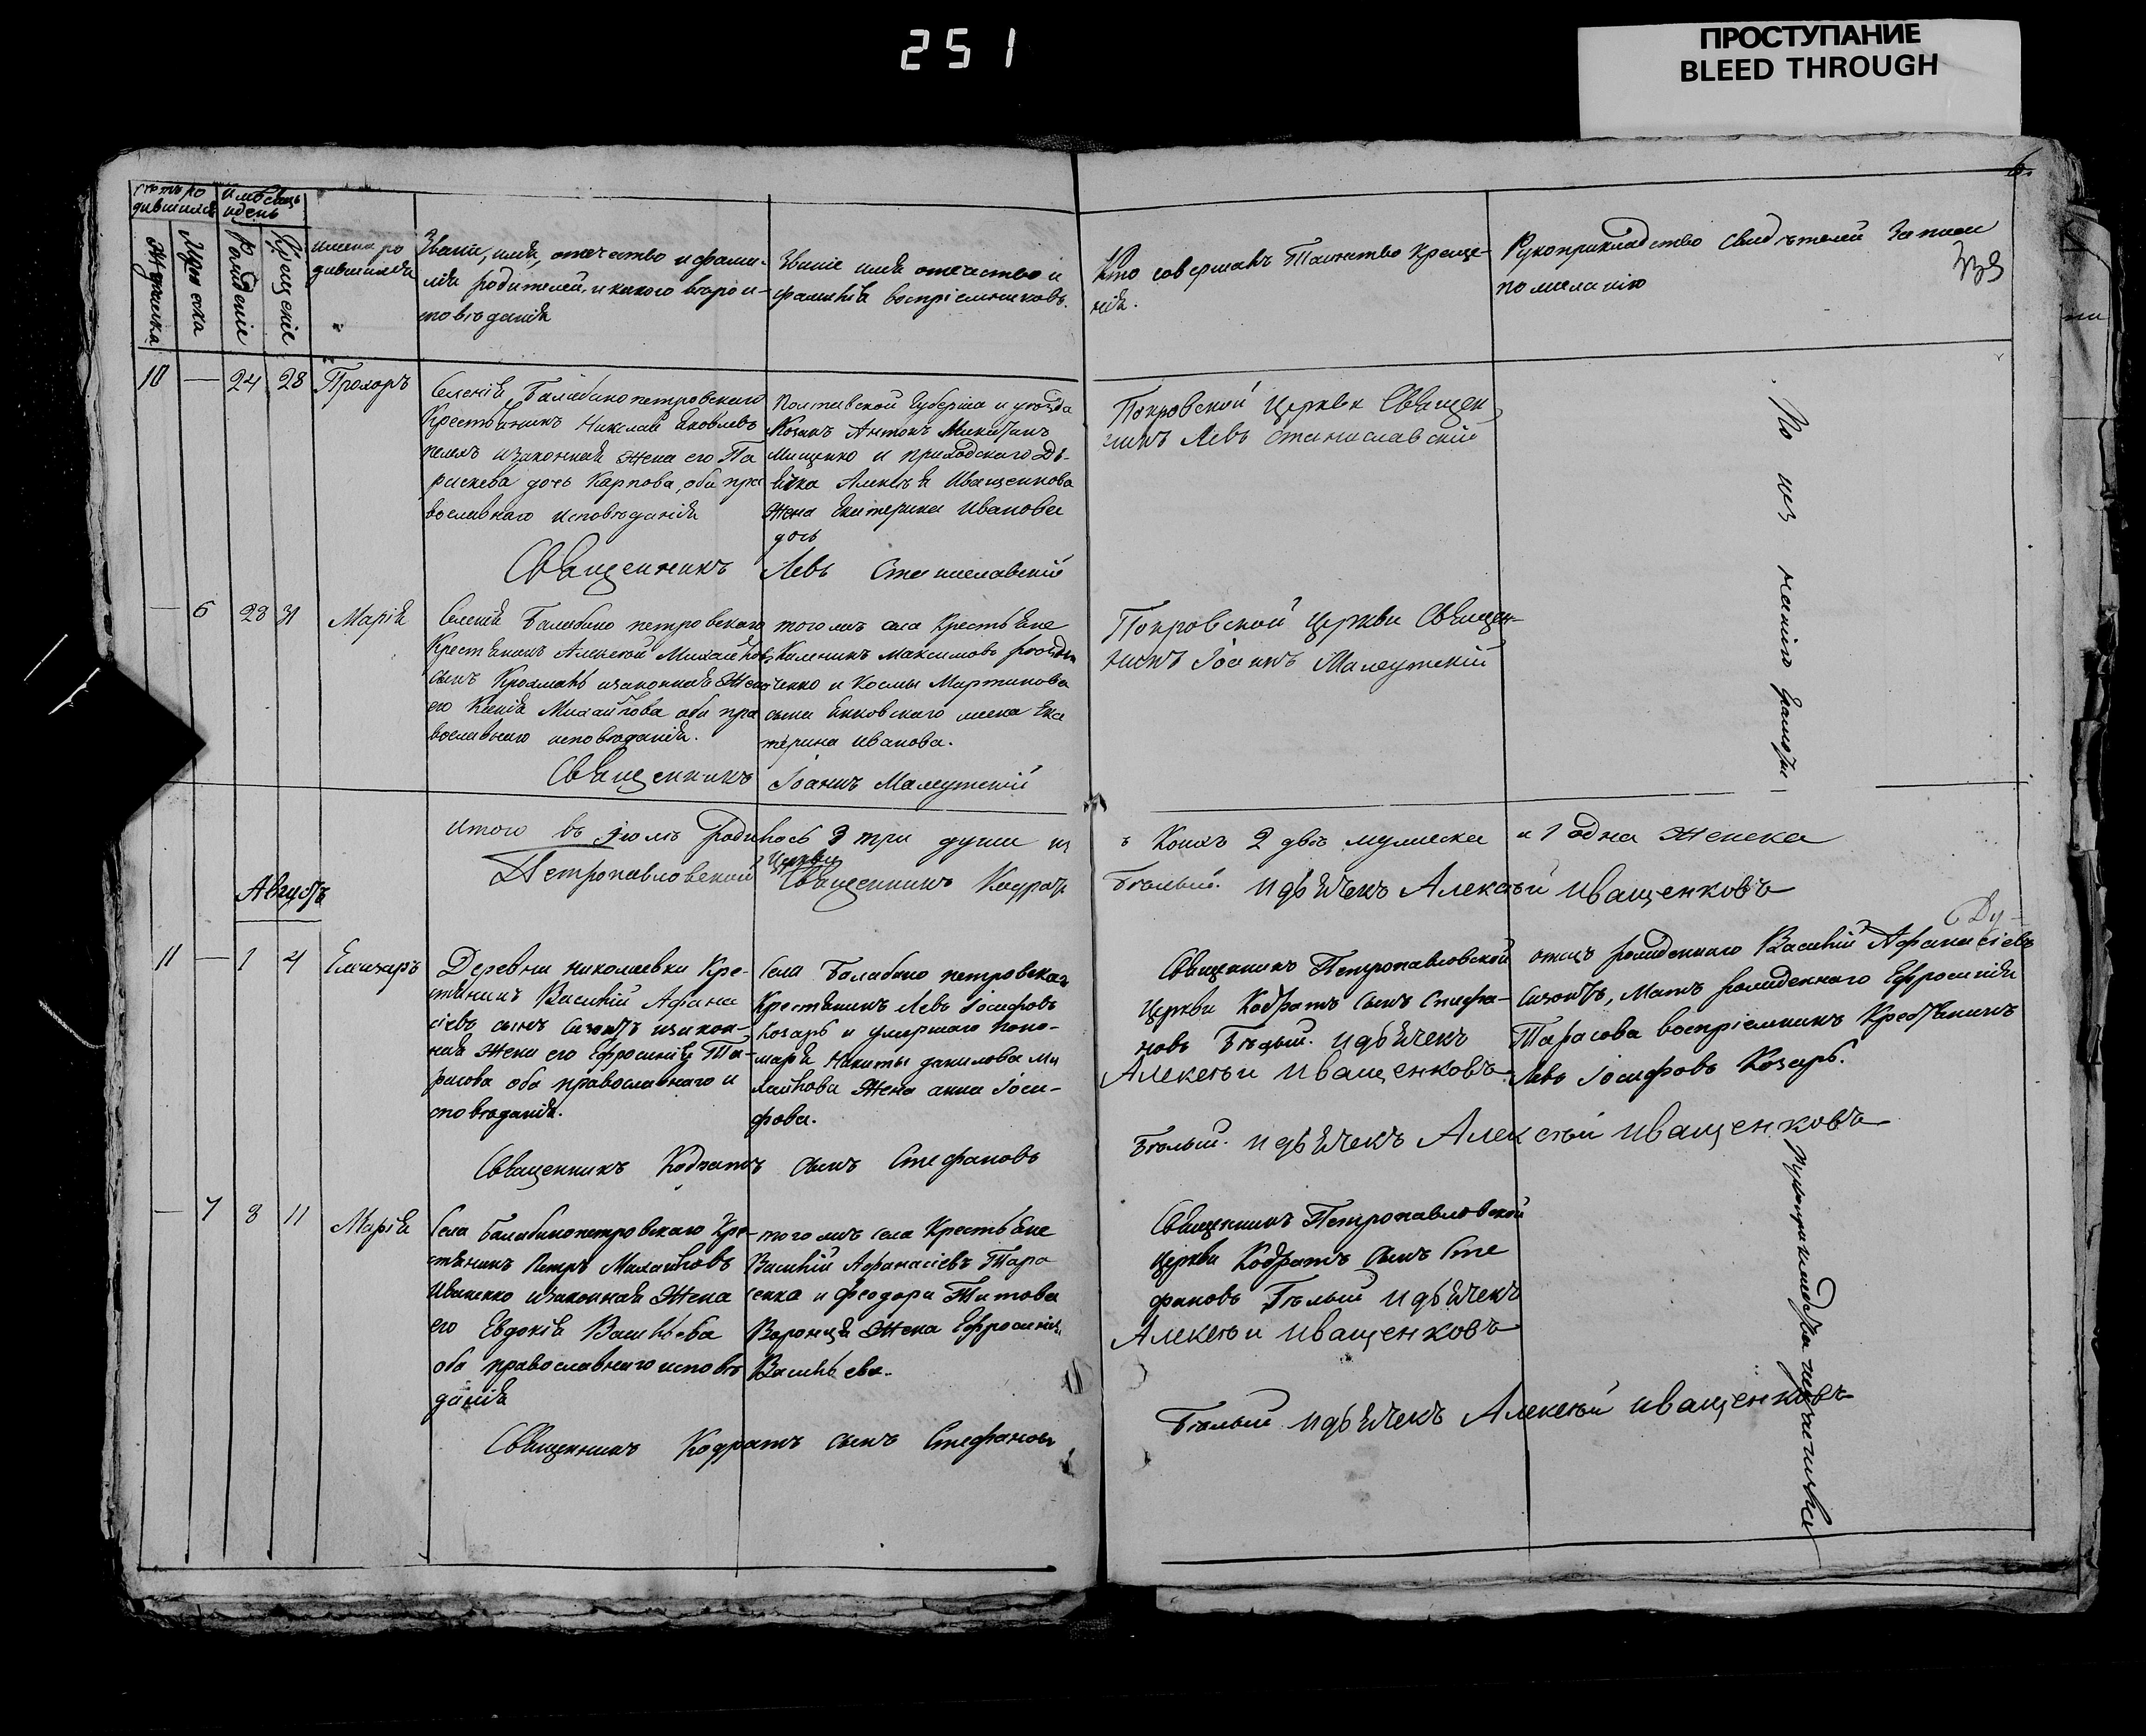 251
ПРОСТУПАНИЕ
BLEED THROUGH
Рожденіе
Крещеніе
имена ро
дившихся
Званіе, имя, отчество и фами-
лія родителей, и какого вѣроис-
повѣданія
Званіе имя отечество и
фамилія воспріемниковъ.
Кто совершалъ Таинство Креще-
нія.
Рукоприкладство свидѣтелей записи
по желанію
10 — 24 28 Прохоръ
Селенія Балабинопетровскаго
Крестьянинъ Николай Яковлевъ
изаконная жена его Па
раскева дочь Карпова, оба пра
вославнаго исповѣданія
Полтавской Губерніи и уѣзда
Козакъ Антонъ Никитинъ
Мищенко и приходскаго Дь-
ячка Алексѣя Иващенкова
жена Екатерина Иванова
дочь
Священникъ Левъ Станиславскій
Покровской Церкви Священ
никъ Левъ Станиславскій
— 6 28 31 Марія
Селенія Балабино петровскаго
Крестьянинъ Алексѣй Михайловъ
сынъ изаконная жена
его Ксенія Михайлова оба пра
вославнаго исповѣданія.
того жъ села Крестьяне
Каленикъ Максимовъ
и Космы Мартинова
сына жена Ека
терина Иванова.
Священникъ Іоаннъ
Покровской Церкви Священ-
никъ Іоаннъ
По неѣ
Итого въ Іюлѣ родилось 3 три души из
ъ коихъ 2 двѣ мужеска и 1 одна женска
Петропавловской Церкви Священникъ Кодратъ
Бѣлый. и дьячекъ Алексѣй Иващенковъ
Августъ
11 — 1 4 Елизаръ
Деревни Николаевки Кре-
стянинъ Василій Афана
сіевъ сынъ изакон-
ная жена его Ефросинія Та-
расова оба православнаго и
сповѣданія.
Села Балабино петровскаго
Крестянинъ Левъ Іосифовъ
Козарь и умершаго поно-
маря Никиты Данилова Ми
хайлова жена Анна Іоси-
фова.
Священникъ Кодратъ сынъ Стефановъ
Священникъ Петропавловской
Церкви Кодратъ сынъ Стефа-
новъ Бѣлый. и дьячекъ
Алексѣй Иващенковъ
отецъ рожденнаго Василій Афанасіевъ
Мать рожденнаго Ефросинія
Тарасова воспріемникъ Крестянинъ
Левъ Іосифовъ Козарь.
Бѣлый. и дьячекъ Алексѣй Иващенковъ
— 7 8 11 Марія
Села Балабинопетровскаго Кре-
стянинъ Петръ Михайловъ
Иваненко изаконная жена
его Евдокія Васильева
оба православнаго исповѣ
данія
того жъ села Крестьяне
Василій Афанасіевъ Тара
сенко и Феодора Титова
жена Ефросинія
Васильева.
Священникъ Кодратъ сынъ Стефановъ
Священникъ Петропавловской
Церкви Кодратъ сынъ Сте
фановъ Бѣлый и дьячекъ
Алексѣй Иващенковъ
Бѣлый и дьячекъ Алексѣй Иващенковъ